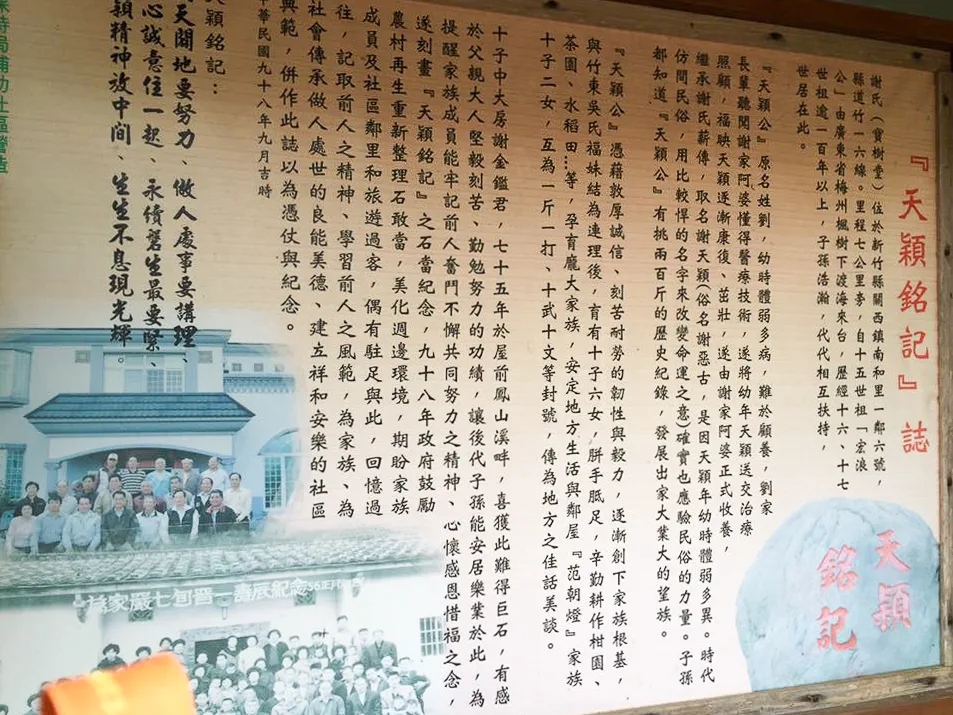 『天穎銘記』誌
謝氏（寶樹堂）位於新竹縣關西鎮南和里一鄰六號，
縣道竹一六線。里程七公里旁，自十五世祖「宏浪
公」由廣東省梅州楓樹下渡海來台，歷經十六、十七
世祖逾一百年以上，子孫浩瀚，代代相互扶持，
世居在此。
『天穎公』原名姓劉，幼時體弱多病，難於顧養，劉家
長輩聽聞謝家阿婆懂得醫療技術，遂將幼年天穎送交治療
照顧，福映天穎逐漸康復、茁壯，遂由謝家阿婆正式收養，
繼承謝氏薪傳，取名謝天穎(俗名謝惡古，是因天穎年幼時體弱多異。時代
仿間民俗，用比較悍的名字來改變命運之意)確實也應驗民俗的力量。子孫
都知道『天穎公』有挑兩百斤的歷史紀錄，發展出家大業大的望族。
『天穎公』憑藉敦厚誠信、刻苦耐勞的韌性與毅力，逐漸創下家族根基，
與竹東吳氏福妹結為連理後，育有十子六女，胼手胝足，辛勤耕作柑園、
茶園、水稻田…等，孕育龐大家族，安定地方生活與鄰屋『范朝燈』家族
十子二女，互為一斤一打、十武十文等封號，傳為地方之佳話美談。
十子中大房謝金鑑君，七十五年於屋前鳳山溪畔，喜獲此難得巨石，有感
於父親大人堅毅刻苦、勤勉努力的功績，讓後代子孫能安居樂業於此，為
提醒家族成員能牢記前人奮鬥不懈共同努力之精神、心懷感恩惜福之念，
遂刻畫『天穎銘記』之石當紀念，九十八年政府鼓勵
農村再生重新整理石敢當，美化週邊環境，期盼家族
成員及社區鄰里和旅遊過客，偶有駐足與此，回憶過
往，記取前人之精神、學習前人之風範，為家族、為
社會傳承做人處世的良能美德、建立祥和安樂的社區
典範，併作此誌以為憑仗與紀念。
中華民國九十八年九月吉時
穎銘記：
天闢地要努力、做人處事要講理、
心誠意住一起、永續磐生最要緊、
穎精神放中間、生生不息現光輝。
保持局補功社區營造
天穎
銘記
為家嚴七旬晉一壽辰紀念56正月